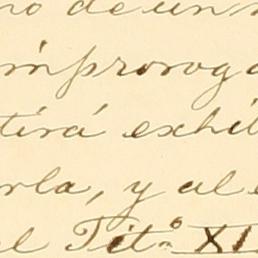 no de un
improroga
tirá exhi
rla, y al e
el Tit.º XI